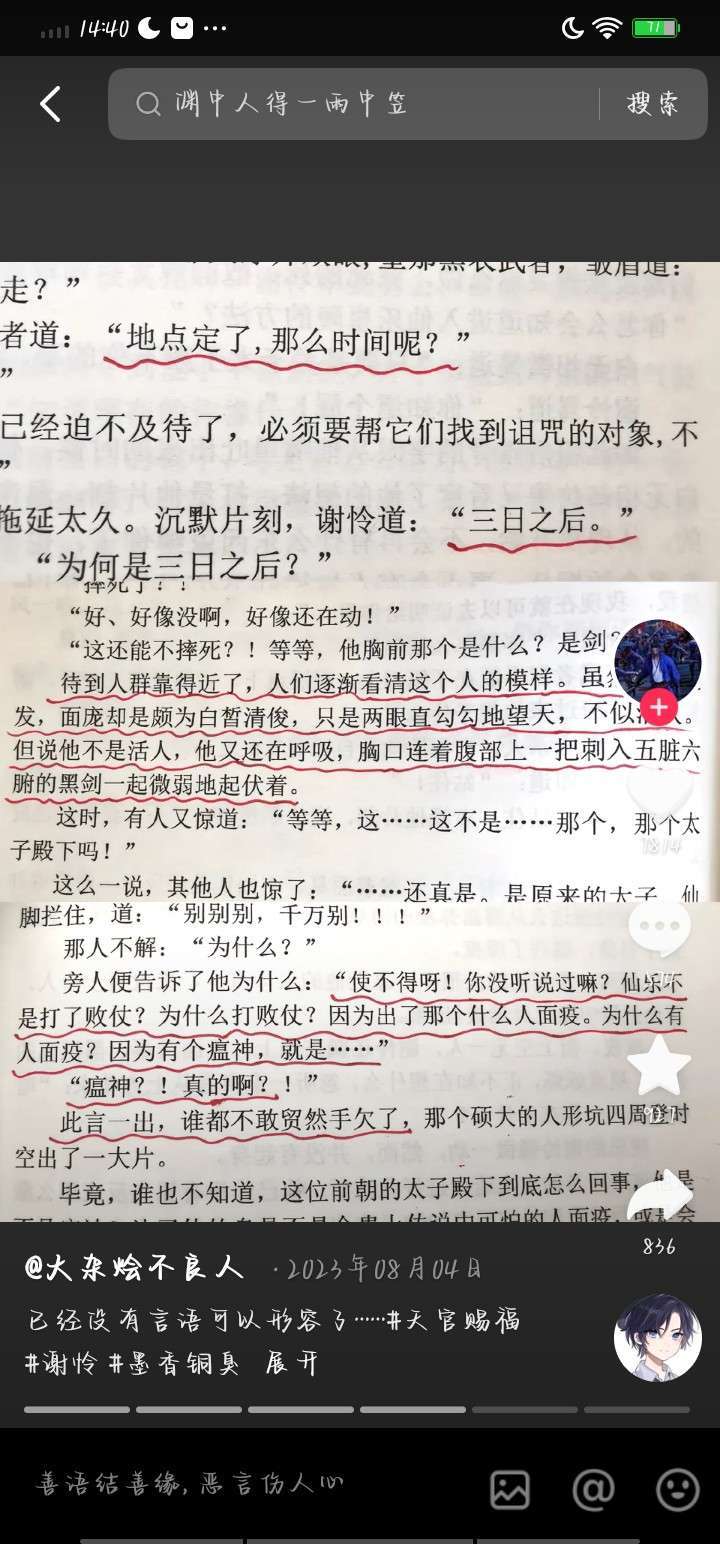 14:40
71
渊中人得一雨中笠
搜索
走？”
者道：“地点定了,那么时间呢？”
”
已经迫不及待了，必须要帮它们找到诅咒的对象,不
”
拖延太久。沉默片刻，谢怜道：“三日之后。”
“为何是三日之后？”
“好、好像没啊，好像还在动！”
“这还能不摔死？！等等，他胸前那个是什么？是剑？
待到人群靠得近了，人们逐渐看清这个人的模样。虽
发，面庞却是颇为白皙清俊，只是两眼直勾勾地望天，不似活人。
但说他不是活人，他又还在呼吸，胸口连着腹部上一把刺入五脏六
腑的黑剑一起微弱地起伏着。
这时，有人又惊道：“等等，这……这不是……那个，那个太
子殿下吗！”
这么一说，其他人也惊了：“……还真是。是原来的太子，仙
脚拦住，道：“别别别，千万别！！！”
那人不解：“为什么？”
旁人便告诉了他为什么：“使不得呀！你没听说过嘛？仙乐不
是打了败仗？为什么打败仗？因为出了那个什么人面疫。为什么有
人面疫？因为有个瘟神，就是……”
“瘟神？！真的啊？！”
此言一出，谁都不敢贸然手欠了，那个硕大的人形坑四周登时
空出了一大片。
毕竟，谁也不知道，这位前朝的太子殿下到底怎么回事，他是
1814
836
@大杂烩不良人 ·2023年08月04日
已经没有言语可以形容了……#天官赐福
#谢怜 #墨香铜臭 展开
善语结善缘,恶言伤人心